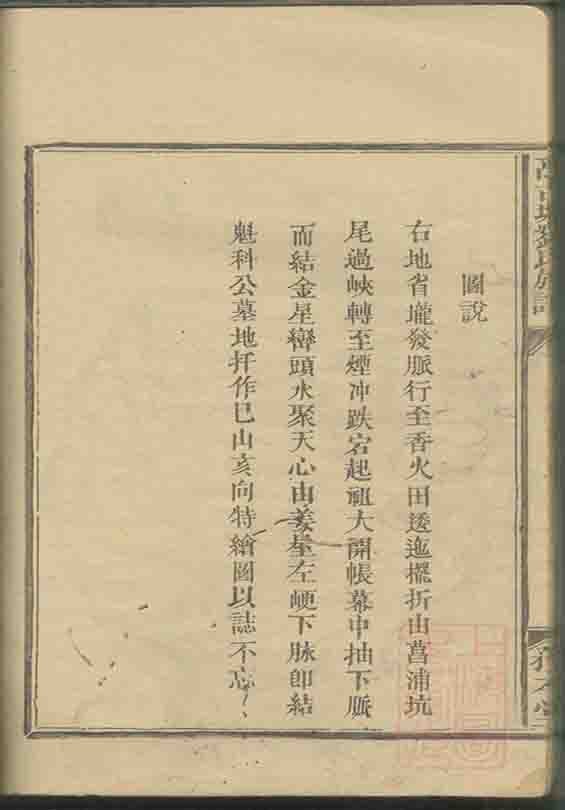 圖說
右地省壠發脈行至香火田逶迤擺折由菖浦坑
尾過峽轉至煙冲跌宕起祖大開帳幕中抽下脈
而結金星巒頭水聚天心由姜星左峺下脉即結
魁科公墓地扦作巳山亥向特繪圖以誌不忘
劉氏